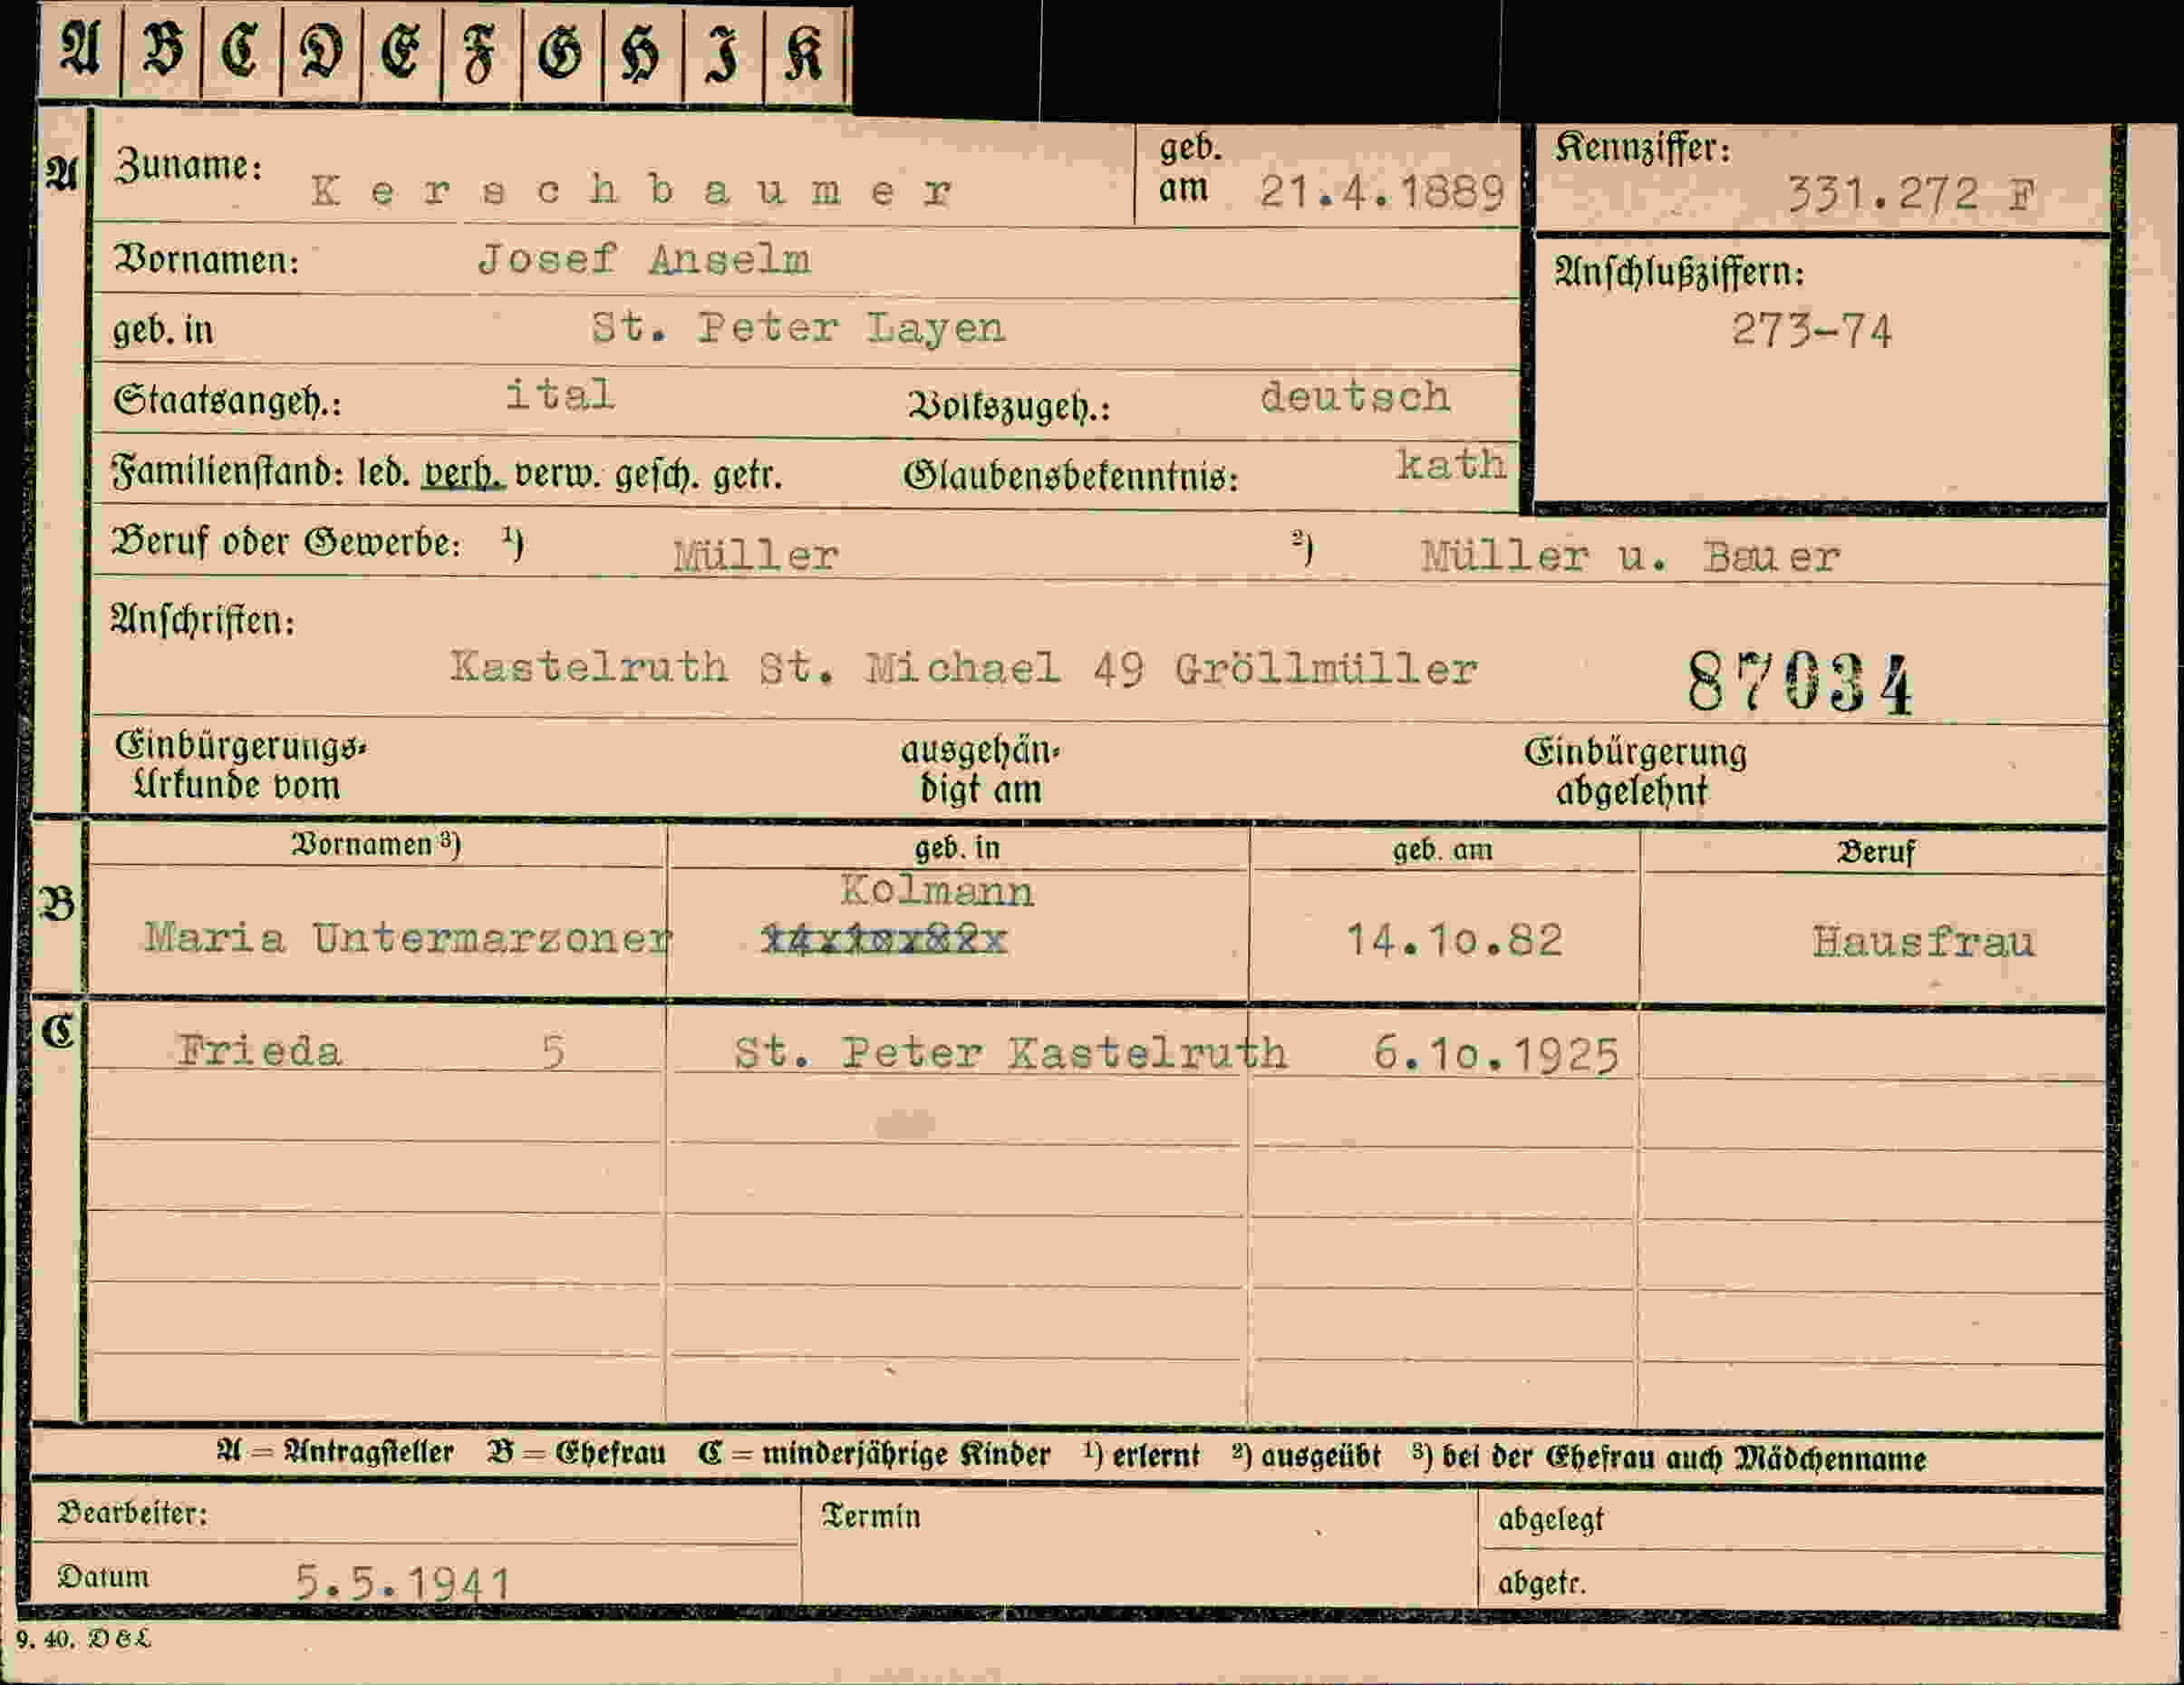 A B C D E F G H I K
A Zuname: Kerschbaumer geb. am 21.4.1889 Kennziffer: 331.272 F
Vornamen: Josef Anselm Anschlußziffern:
geb. in St. Peter Layen 273-74
Staatsangeh.: ital Volkszugeh.: deutsch
Familienstand: led. verh. verw. gesch. getr. Glaubensbekenntnis: kath
Beruf oder Gewerbe: 1) Müller 2) Müller u. Bauer
Anschriften:
Kastelruth St. Michael 49 Gröllmüller 87034
Einbürgerungs- ausgehän- Einbürgerung
Urkunde vom digt am abgelehnt
Vornamen 3) geb. in geb. am Beruf
Kolmann
B Maria Untermarzoner 14x10x82x 14.10.82 Hausfrau
C Frieda 5 St. Peter Kastelruth 6.10.1925
A = Antragsteller B = Ehefrau C = minderjährige Kinder 1) erlernt 2) ausgeübt 3) bei der Ehefrau auch Mädchenname
Bearbeiter: Termin abgelegt
Datum 5.5.1941 abgetr.
9. 40. D&L